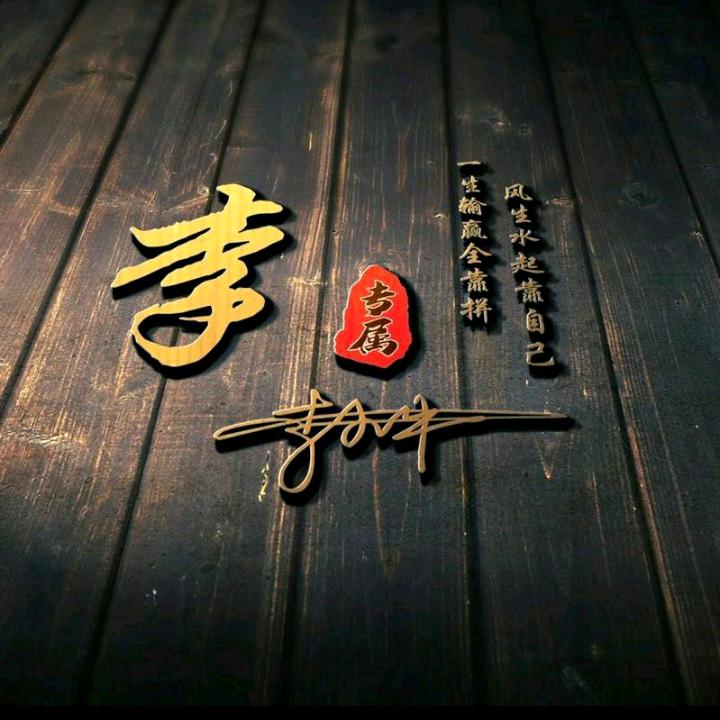 李
专属
风生水起靠自己
一生输赢全靠拼